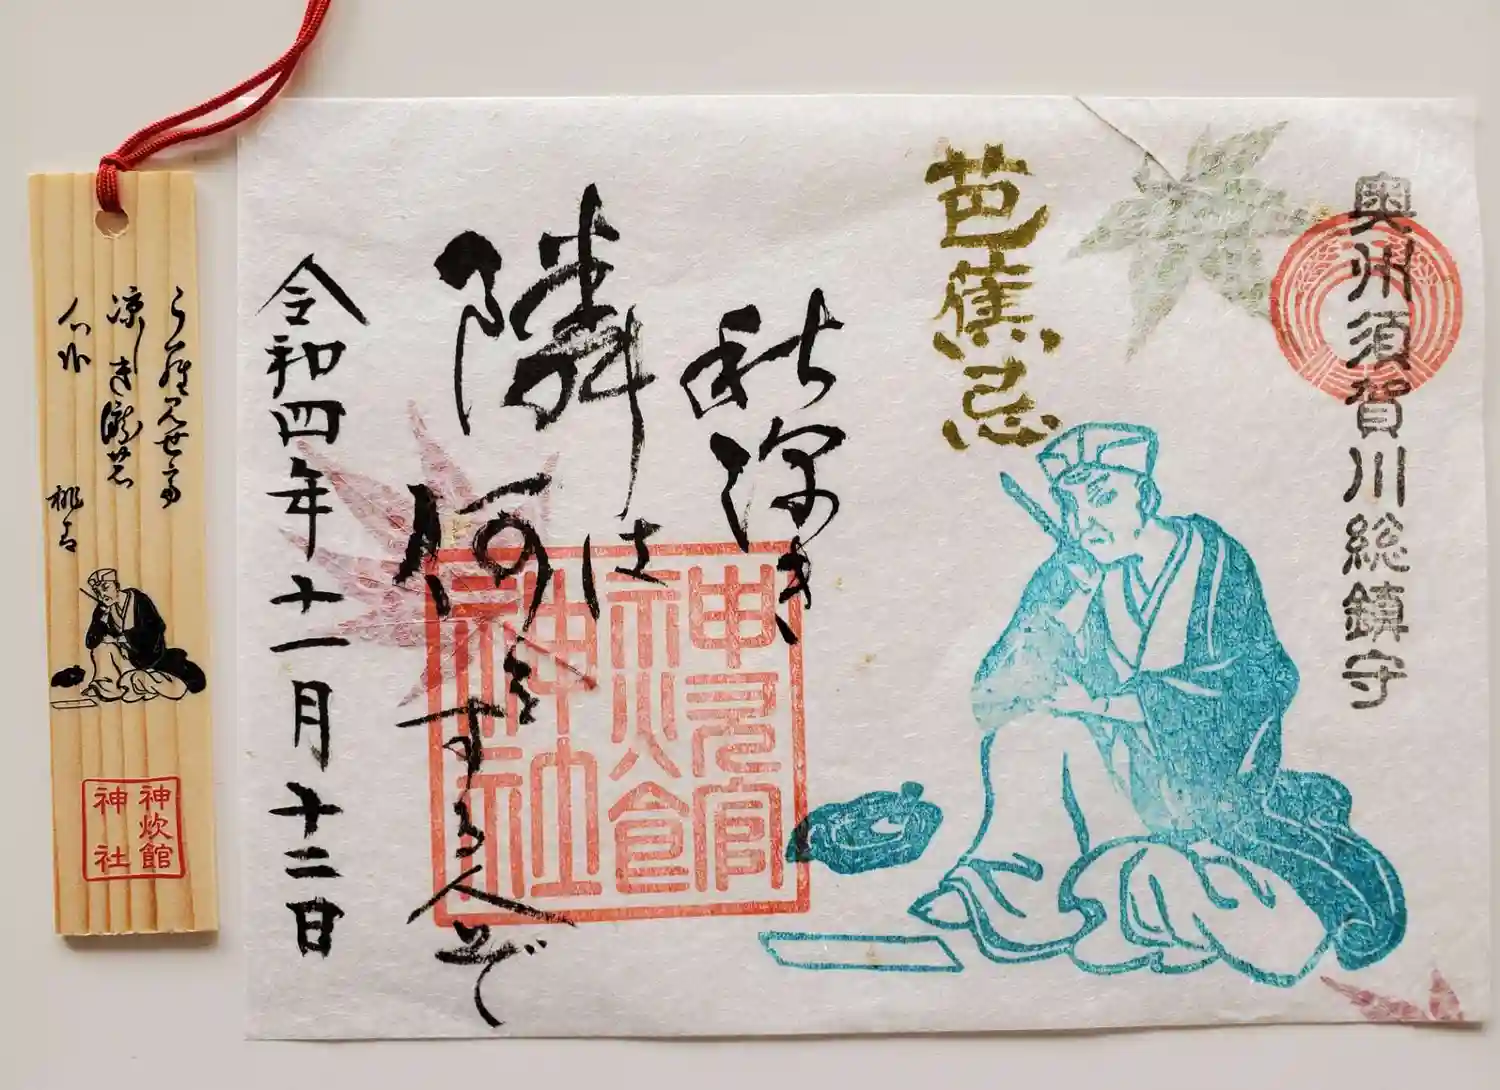 奥州須賀川総鎮守
芭蕉忌
秋深き
隣は何をする人ぞ
令和四年十一月十二日
神炊館
神社
うら見せて
涼しき瀧の
心哉
桃青
神炊館
神社